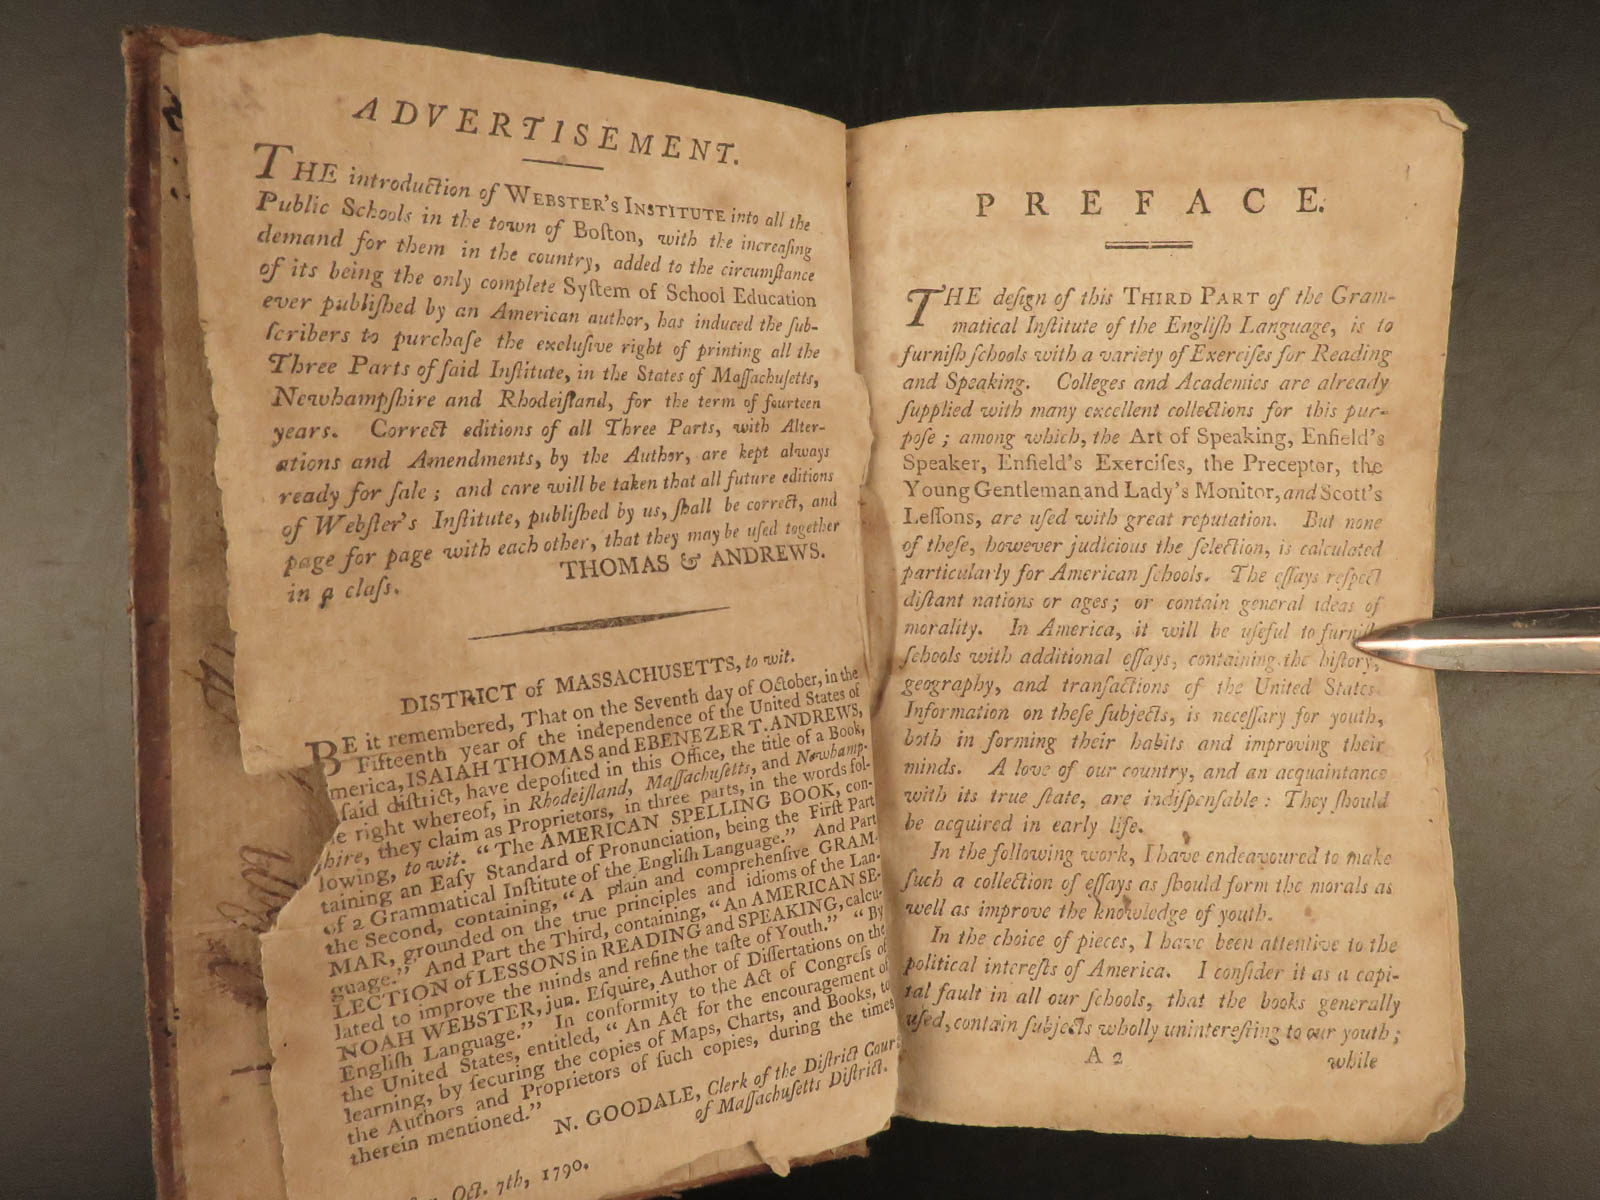 ADVERTISEMENT.
THE introduction of WEBSTER'S INSTITUTE into all the
Public Schools in the town of Boſton, with the increaſing
demand for them in the country, added to the circumſtance
of its being the only complete Syſtem of School Education
ever publiſhed by an American author, has induced the ſub-
ſcribers to purchaſe the excluſive right of printing all the
Three Parts of ſaid Inſtitute, in the States of Maſſachuſetts,
Newhampſhire and Rhodeiſland, for the term of fourteen
years. Correct editions of all Three Parts, with Alter-
ations and Amendments, by the Author, are kept always
ready for ſale; and care will be taken that all future editions
of Webſter's Inſtitute, publiſhed by us, ſhall be correct, and
page for page with each other, that they may be uſed together
in a claſs.
THOMAS & ANDREWS.
DISTRICT of MASSACHUSETTS, to wit.
BE it remembered, That on the Seventh day of October, in the
Fifteenth year of the independence of the United States of
merica, ISAIAH THOMAS and EBENEZER T. ANDREWS,
ſaid diſtrict, have depoſited in this Office, the title of a Book,
right whereof, in Rhodeiſland, Maſſachuſetts, and Newhamp-
hire, they claim as Proprietors, in three parts, in the words fol-
lowing, to wit. "The AMERICAN SPELLING BOOK, con-
taining an Eaſy Standard of Pronunciation, being the Firſt Part
of a Grammatical Inſtitute of the Engliſh Language." And Part
the Second, containing, "A plain and comprehenſive GRAM-
MAR, grounded on the true principles and idioms of the Lan-
guage." And Part the Third, containing, "An AMERICAN SE-
LECTION of LESSONS in READING and SPEAKING, calcu-
lated to improve the minds and refine the taſte of Youth." "By
NOAH WEBSTER, jun. Eſquire, Author of Diſſertations on the
Engliſh Language." In conformity to the Act of Congreſs of
the United States, entitled, "An Act for the encouragement of
learning, by ſecuring the copies of Maps, Charts, and Books, to
the Authors and Proprietors of ſuch copies, during the times
therein mentioned."
N. GOODALE, Clerk of the Diſtrict Cour
of Maſſachuſetts Diſtrict.
Oct. 7th, 1790.
PREFACE.
THE deſign of this THIRD PART of the Gram-
matical Inſtitute of the Engliſh Language, is to
furniſh ſchools with a variety of Exerciſes for Reading
and Speaking. Colleges and Academies are already
ſupplied with many excellent collections for this pur-
poſe; among which, the Art of Speaking, Enfield's
Speaker, Enfield's Exerciſes, the Preceptor, the
Young Gentleman and Lady's Monitor, and Scott's
Leſſons, are uſed with great reputation. But none
of theſe, however judicious the ſelection, is calculated
particularly for American ſchools. The eſſays reſpect
diſtant nations or ages; or contain general ideas of
morality. In America, it will be uſeful to furniſh
ſchools with additional eſſays, containing the hiſtory,
geography, and tranſactions of the United States.
Information on theſe ſubjects, is neceſſary for youth,
both in forming their habits and improving their
minds. A love of our country, and an acquaintance
with its true ſtate, are indiſpenſable: They ſhould
be acquired in early life.
In the following work, I have endeavoured to make
ſuch a collection of eſſays as ſhould form the morals as
well as improve the knowledge of youth.
In the choice of pieces, I have been attentive to the
political intereſts of America. I conſider it as a capi-
tal fault in all our ſchools, that the books generally
uſed, contain ſubjects wholly unintereſting to our youth;
A 2
while